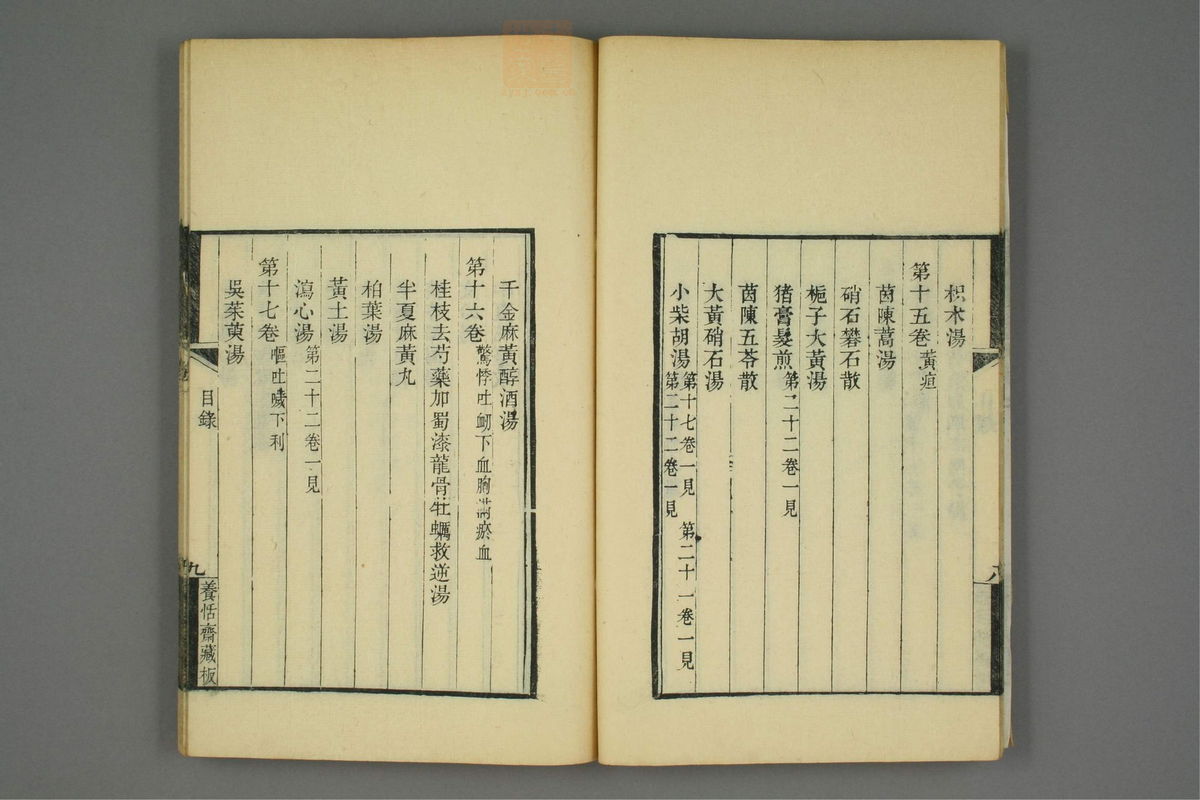 枳术湯
第十五卷 黃疸
茵陳蒿湯
硝石礬石散
栀子大黃湯
猪膏髮煎 第二十二卷一見
茵陳五苓散
大黃硝石湯
小柴胡湯 第十七卷一見 第二十一卷一見
第二十二卷一見
八
千金麻黃醇酒湯
第十六卷 驚悸吐衄下血胸滿瘀血
桂枝去芍藥加蜀漆龍骨牡蠣救逆湯
半夏麻黃丸
柏葉湯
黃土湯
瀉心湯 第二十二卷一見
第十七卷 嘔吐噦下利
吳茱萸湯
目錄
九
養恬齋藏板